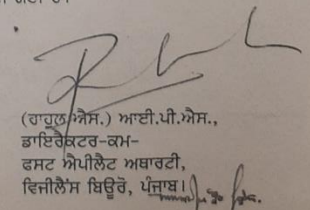 (ਰਾਹੁਲ ਐਸ.) ਆਈ.ਪੀ.ਐਸ.,
ਡਾਇਰੈਕਟਰ-ਕਮ-
ਫਸਟ ਐਪੀਲੈਟ ਅਥਾਰਟੀ,
ਵਿਜੀਲੈਂਸ ਬਿਊਰੋ, ਪੰਜਾਬ।